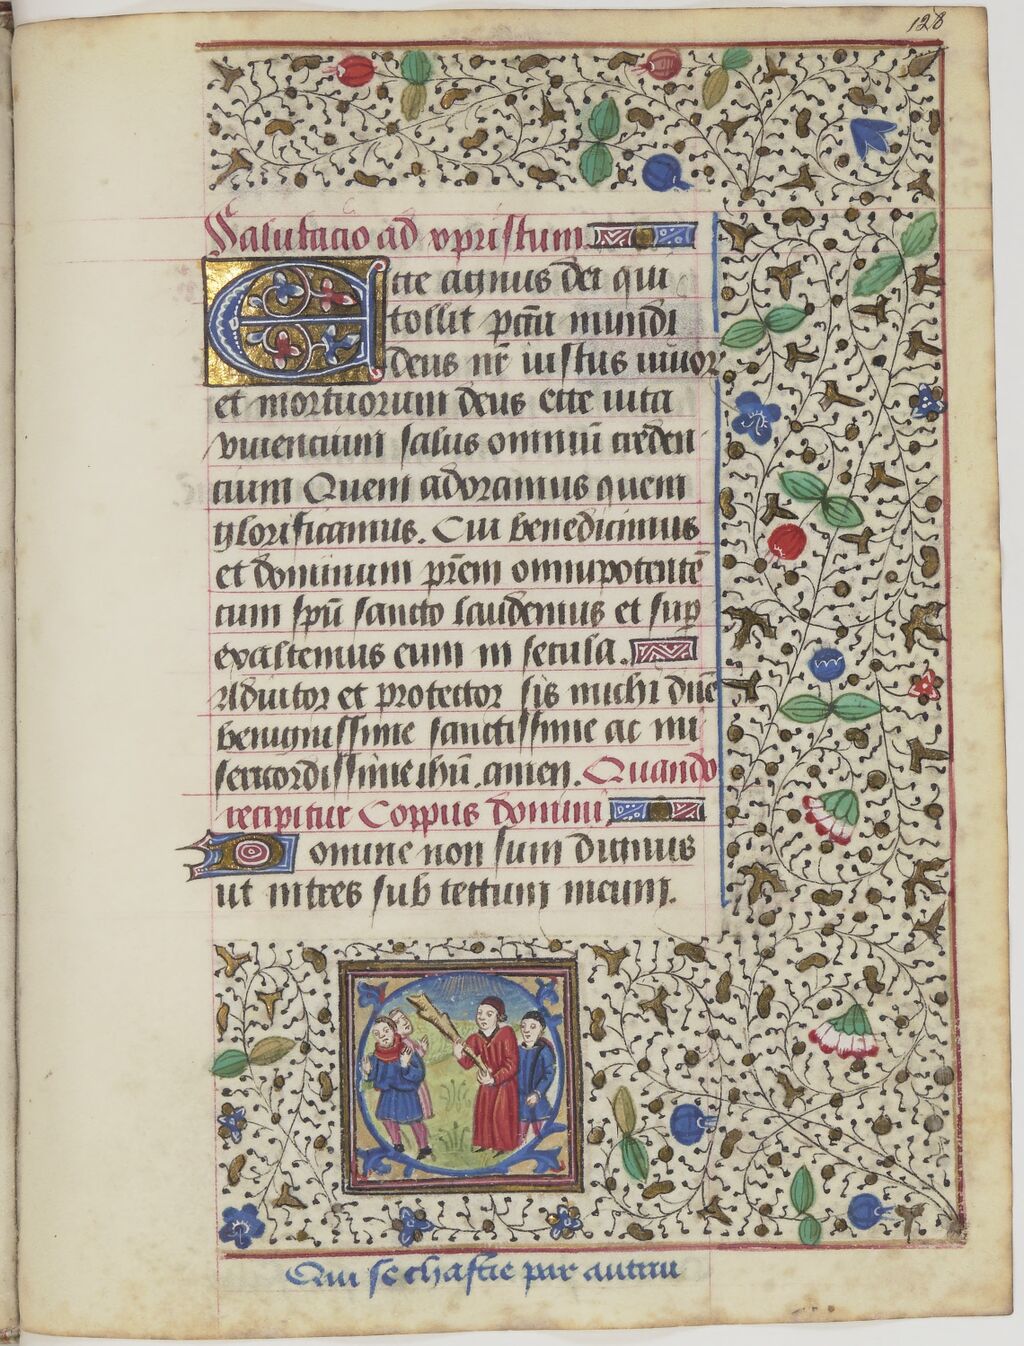 128
Salutacio ad xpristum
Ecce agnus dei qui
tollit pctā mundi
deus nr̄ iustus viuor
et mortuorum deus ecce uita
viuencium salus omniū creden
cium Quem adoramus quem
glorificamus. Cui benedicimus
et dominum pr̄em omnipotentē
cum spū sancto laudemus et sup
exaltemus eum in secula.
Adiutor et protector sis michi dn̄e
benignissime sanctissime ac mi
sericordissime ihū. amen. Quando
recipitur Corpus domini
Domine non sum dignus
ut intres sub tectum meum.
Qui se chastie par autrui